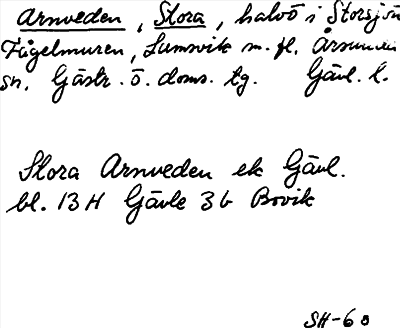 Arnveden, Stora, halvö i Storsjön
Fågelmuren, Lumsvik m. fl. Årsunda
sn. Gästr. ö. doms. tg. Gävl. l.
Stora Arnveden ek Gävl.
bl. 13 H Gävle 3b Bovik
SH-60